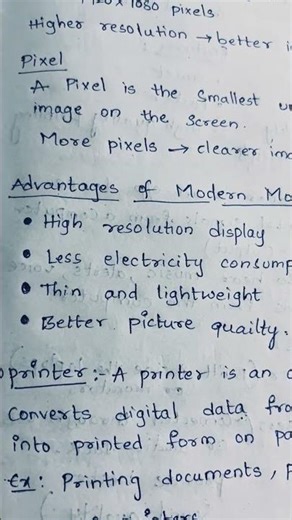 1080 pixels
Higher resolution → better
Pixel
A Pixel is the smallest
image on the screen.
More pixels → clearer
Advantages of Modern
• High resolution display
• Less electricity
• Thin and lightweight
• Better picture quailty.
printer:- A printer is an
Converts digital data
into printed form on
Ex: Printing documents,